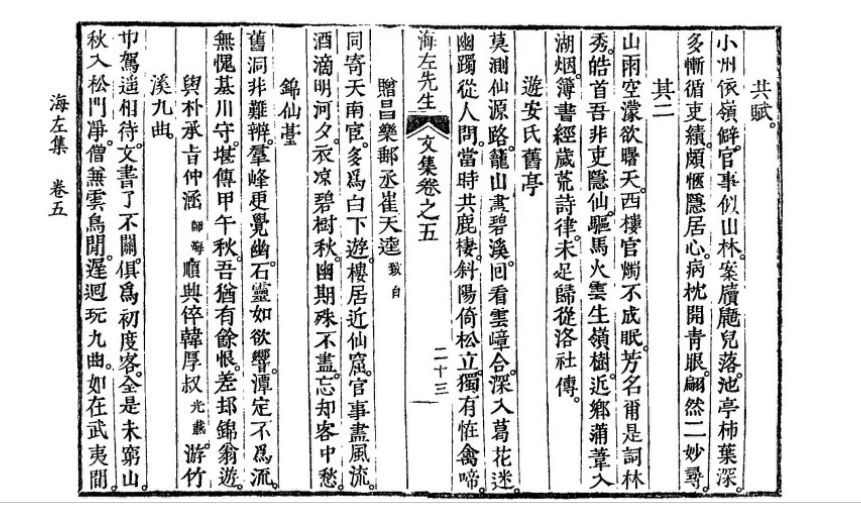 共賦。
小州依嶺僻。官事似山林。案牘颷兒落。池亭柿葉深。
多慚循吏績。頗愜隱居心。病枕開青眼。翩然二妙尋。
其二
山雨空濛欲曙天。西樓官燭不成眠。芳名爾是詞林
秀。皓首吾非吏隱仙。驅馬火雲生嶺樹。近鄉蒲葦入
湖烟。簿書經歲荒詩律。未足歸從洛社傳。
遊安氏舊亭
莫測仙源路。龍山書碧溪。回看雲嶂合。深入葛花迷。
幽躅從人問。當時共鹿棲。斜陽倚松立。獨有恠禽啼。
海左先生文集卷之五
二十三
贈昌樂郵丞崔天逵 致自
同寄天南宦。多爲白下遊。樓居近仙窟。官事盡風流。
酒滴明河夕。衣凉碧樹秋。幽期殊不盡。忘却客中愁。
錦仙臺
舊洞非難辨。羣峰更覺幽。石靈如欲響。潭定不爲流。
無愧基川守。堪傳甲午秋。吾猶有餘恨。差邨錦翁遊。
與朴承旨仲涵 師海 順興倅韓厚叔 光載 游竹
溪九曲。
巾駕遥相待。文書了不關。俱爲初度客。全是未窮山。
秋入松門凈。僧兼雲鳥閒。遲迴玩九曲。如在武夷間。
海左集 卷五